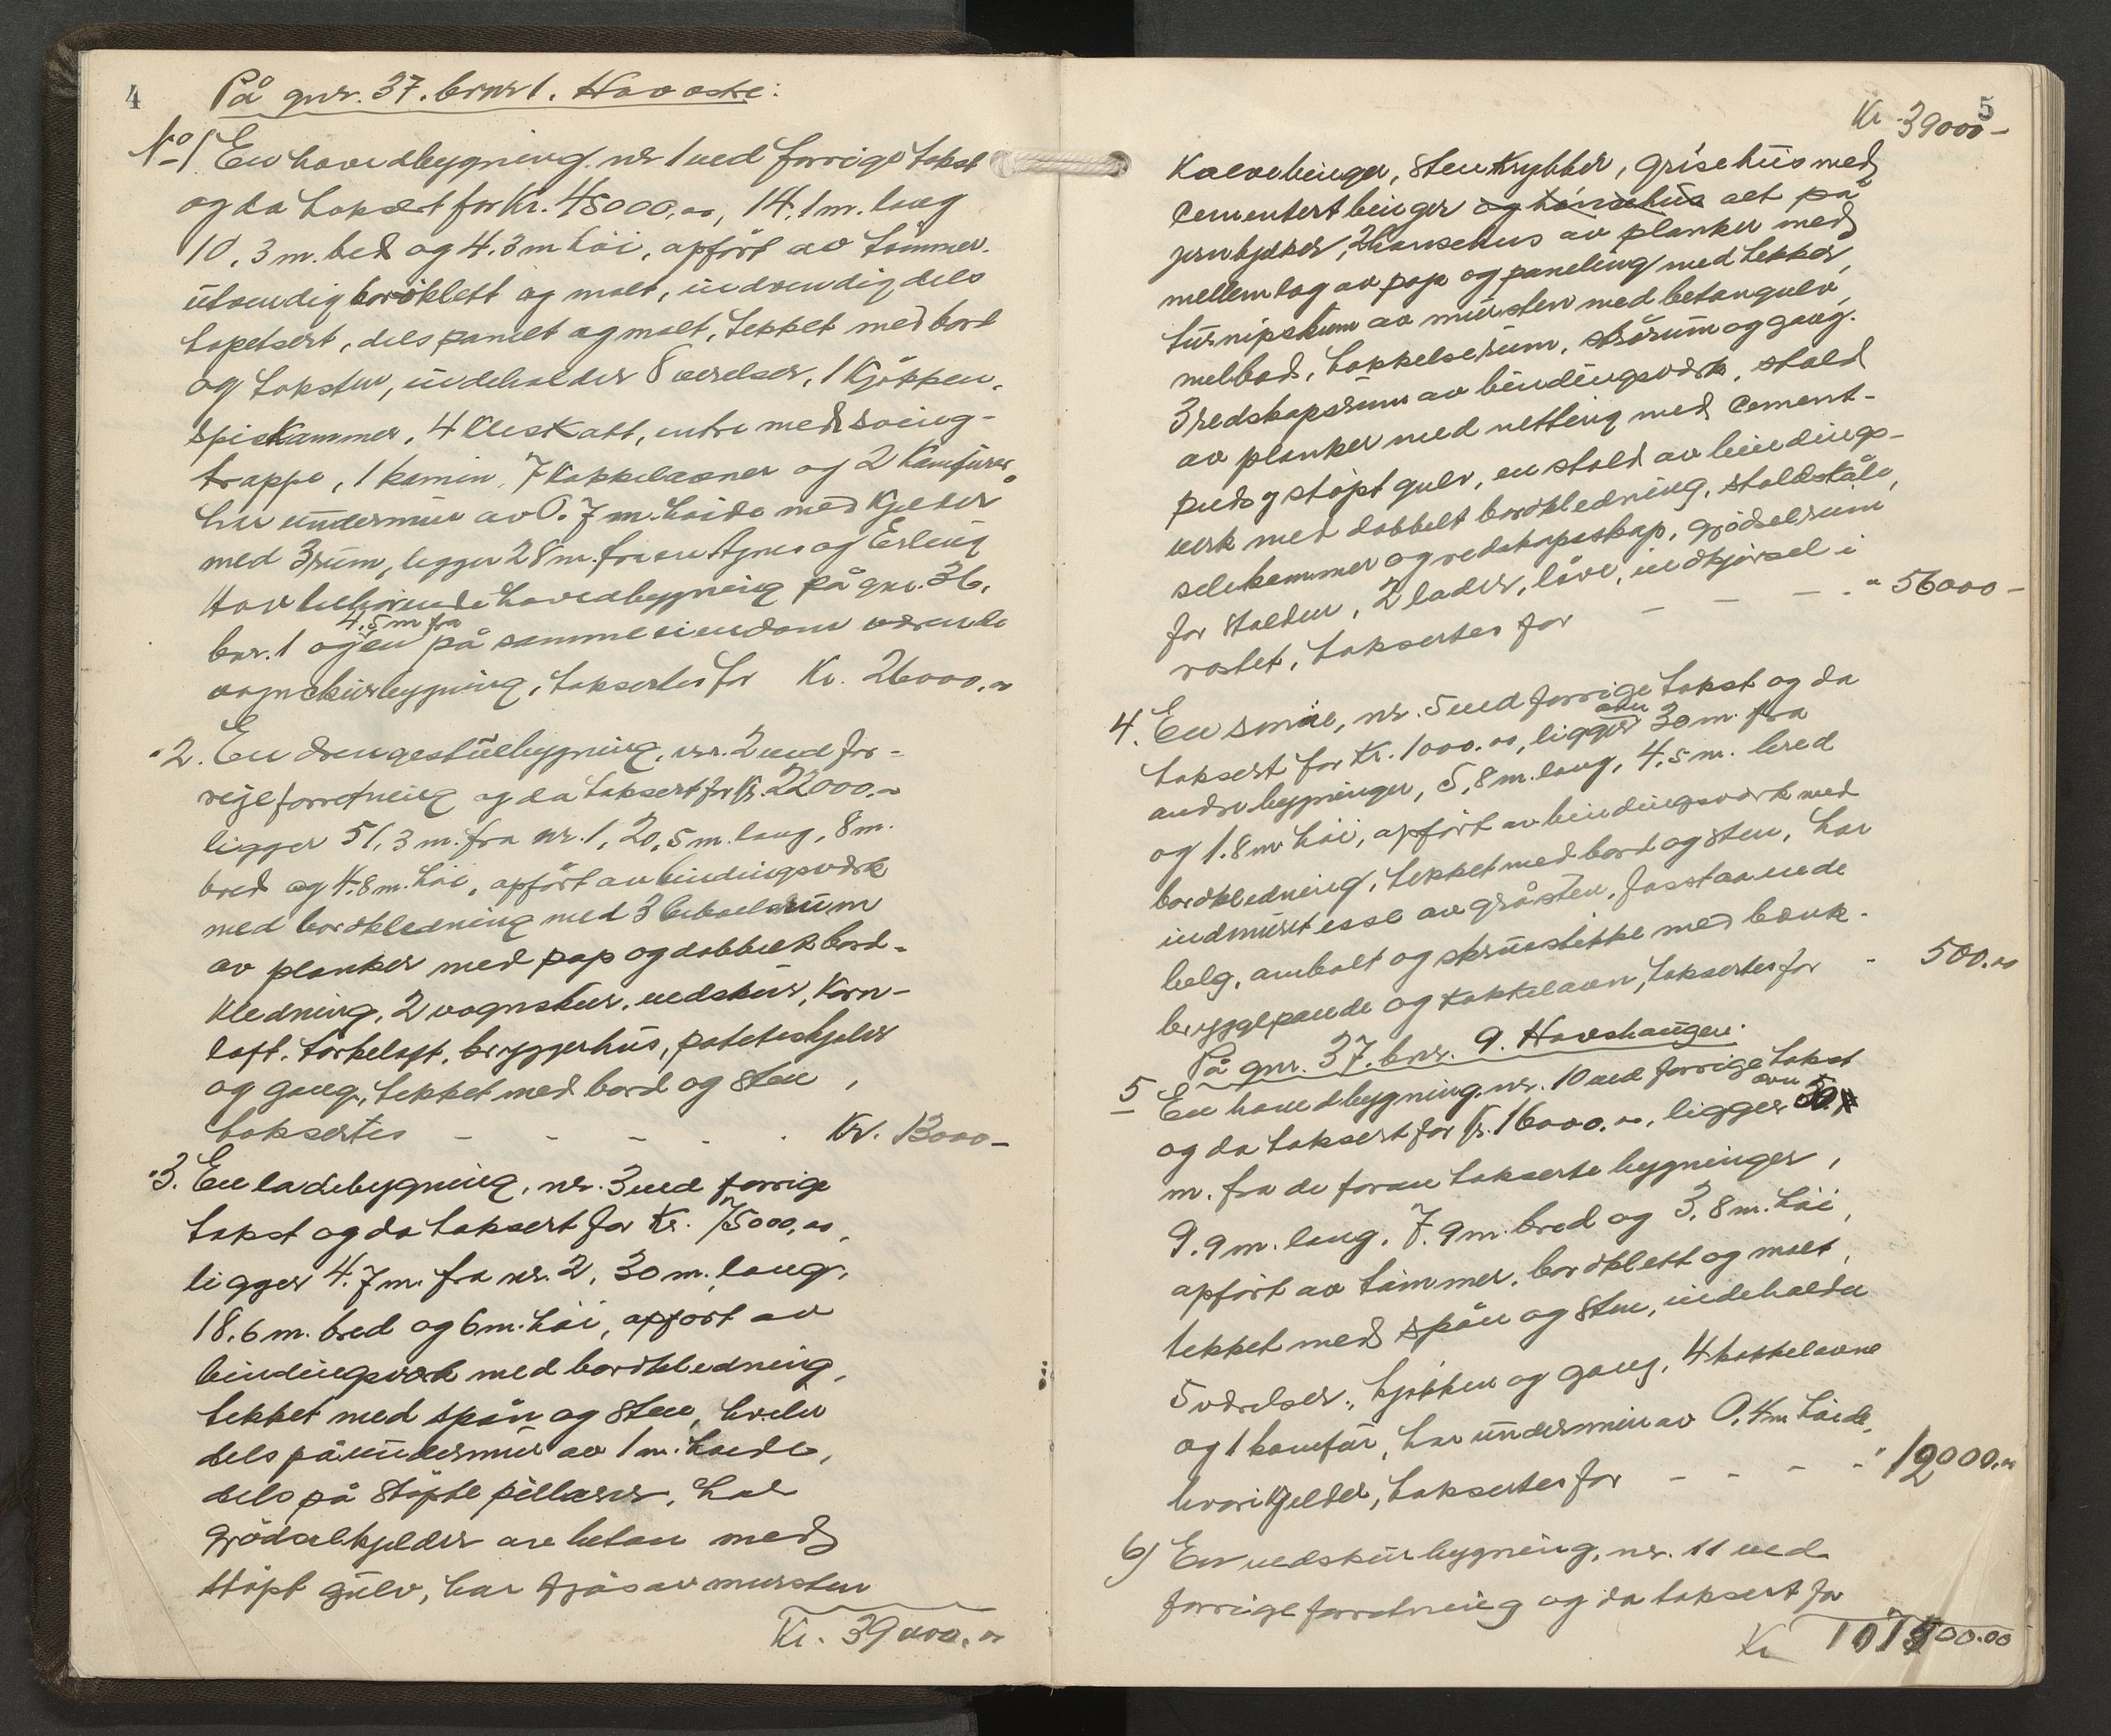 4
På gnr. 37. brnr 1. Hov østre:
No 1 En hovedbygning. nr 1 ved forrige takst
og da taksert for Kr. 45000,00, 14,1 m. lang
10,3 m. bred og 4.3 m høi, opført av tømmer.
utvendig bordklett og malt, indvendig dels
tapetsert, dels panelt og malt, tekket med bord
og takstен, indeholder 8 værelser, 1 kjøkken.
spiskammer, 4 klæskott, entre med sving-
trappe, 1 kamin, 7 kakkelovner og 2 komfurer,
har undermur av 0.7 m. høide med kjelder
med 3 rum, ligger 28 m. fra en Agnes og Erling
Hov tilhørende hovedbygning på gnr. 36.
4,5 m fra
bnr. 1 og en på samme eiendom værende
vognskurbygning, taksertes for Kr. 26000,00
" 2. En drengestuebygning, nr. 2 ved for-
rige forretning og da taksert for Kr. 22000.00
ligger 51,3 m. fra nr. 1, 20,5 m. lang, 8 m.
bred og 4.8 m. høi, opført av bindingsværk
med bordkledning med 3 beboelsesrum
av planker med pap og dobbelt bord-
kledning, 2 vognskur, vedskur, korn-
loft. tørkeloft, bryggerhus, poteteskjeler
og gang, tekket med bord og sten,
taksertes - - - - - Kr. 13000-
" 3. En ladebygning, nr. 3 ved forrige
takst og da taksert for Kr. 75000,00,
ligger 4.7 m. fra nr. 2, 30 m. lang,
18,6 m. bred og 6 m. høi, opført av
bindingsværk med bordkledning,
tekket med spån og sten, hviler
dels på undermur av 1 m. høide,
dels på støpte pillarer, har
gjødselkjelder av beton med
støpt gulv, har fjøs av mursten
Kr. 39000.00
5
Kr. 39000-
kalvebinger, stenkrybber, grisehus med
cementert binger og hønsehus alt på
jernbjelker, 2 hønsehus av planker med
mellemlag av pap og paneling med tekker,
turnipsrum av mursten med betongulv,
melbod, hakkelserum, strørum og gang.
3 redskapsrum av bindingsværk, stald
av planker med netting med cement-
puds og støpt gulv, en stald av bindings-
verk med dobbelt bordkledning, staldskåle,
selekammer og redskapsskap, gjødselrum
for stalden, 2 lader, låve, indkjørsel i
rostet, taksertes for - - - - " 56000-
4. En smie, nr. 5 ved forrige takst og da
taksert for Kr. 1000.00, ligger over 30 m. fra
andre bygninger, 5,8 m. lang, 4.5 m. bred
og 1.8 m høi, opført av bindingsværk med
bordkledning, tekket med bord og sten, har
indmuret esse av gråsten, fasstaaende
belg, ambolt og skruestikke med bænk.
bryggepande og kakkelovn, taksertes for " 500.00
På gnr. 37. bnr. 9. Hovshaugen.
5 En hovedbygning, nr. 10 ved forrige takst
og da taksert for Kr. 16000.00, ligger over 30
m. fra de foran takserte bygninger,
9.9 m. lang, 7.9 m. bred og 3.8 m. høi,
opført av tømmer. bordklett og malt,
tekket med spån og sten, indeholder
5 værelser, kjøkken og gang, 4 kakkelovne
og 1 komfur, har undermur av 0.4 m høide,
hvori kjelder, taksertes for - - - - " 12000.00
6) En vedskurbygning, nr. 11 ved
forrige forretning og da taksert for
Kr 107500.00